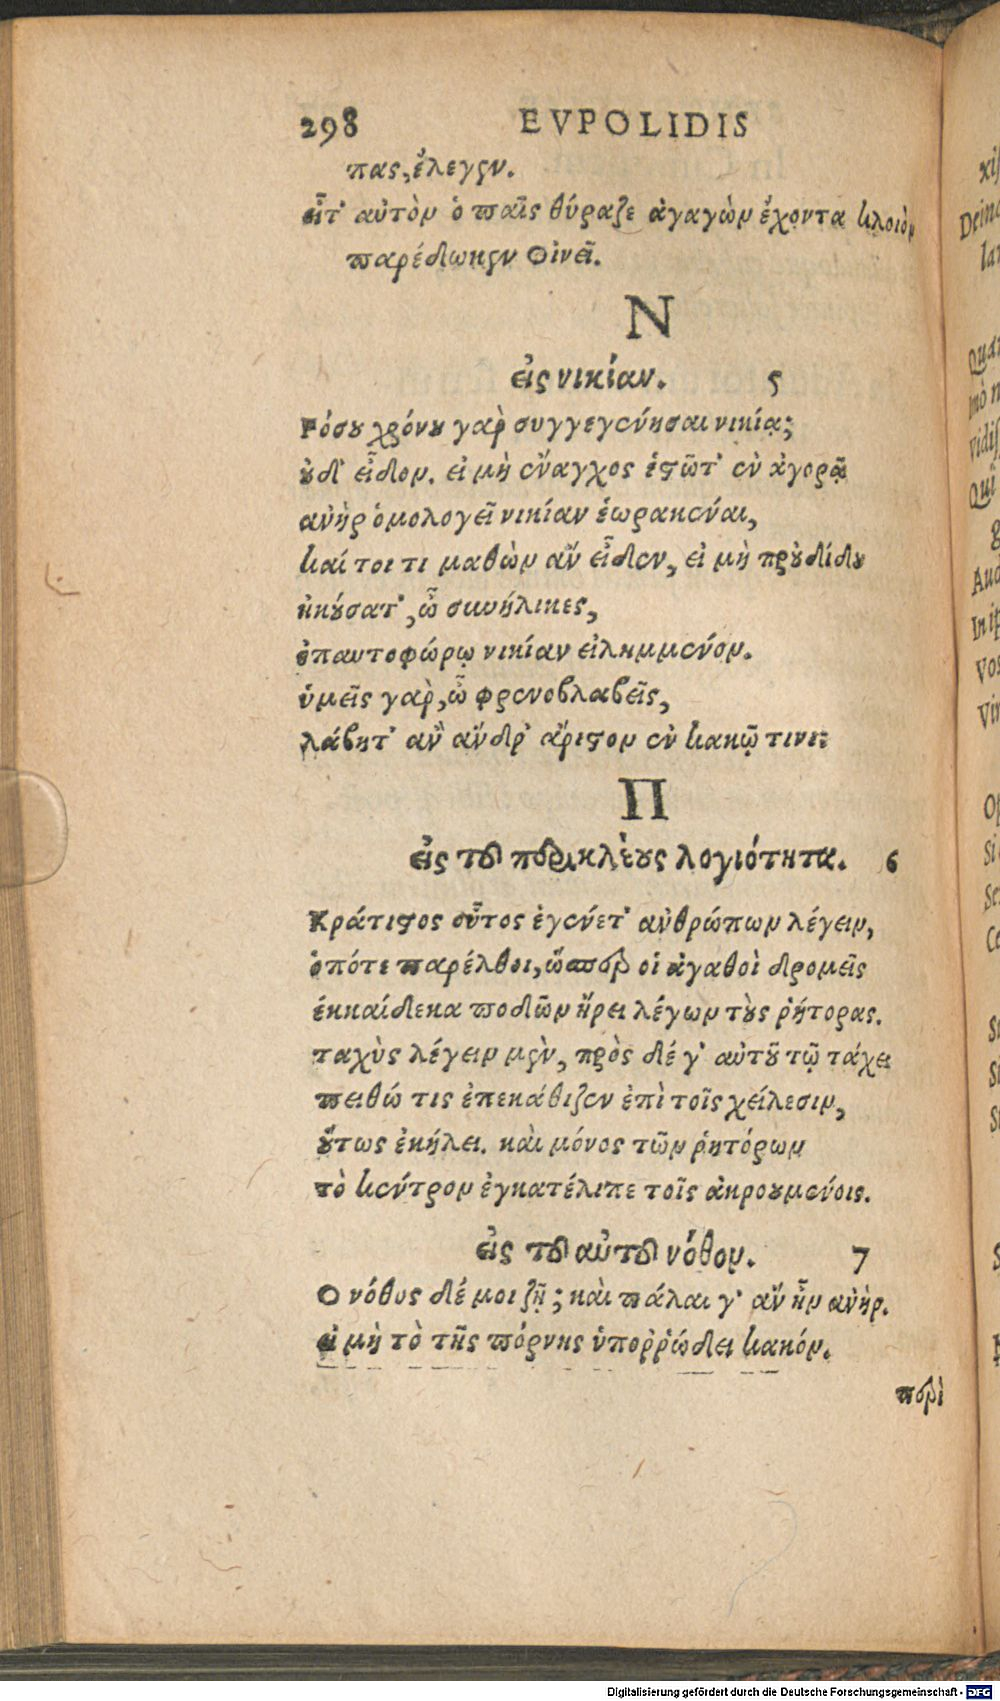 298 EVPOLIDIS
πας, ἔλεγεν.
εἶτ' αὐτὸν ὁ παῖς θύραζε ἀγαγὼν ἔχοντα κλοιὸν
παρέδωκεν Οἰνεῖ.
Ν
εἰς νικίαν. 5
Πόσου χρόνου γὰρ συγγεγένησαι νικίᾳ;
οὐδ' εἶδον. εἰ μὴ ἔναγχος ἑστῶτ' ἐν ἀγορᾷ
ἀνὴρ ὁμολογεῖ νικίαν ἑωρακέναι,
καί τοι τι μαθὼν ἂν εἶδεν, εἰ μὴ προὐδίδου
ἠκούσατ', ὦ συνήλικες,
ἐπαυτοφώρῳ νικίαν εἰλημμένον.
ὑμεῖς γὰρ, ὦ φρενοβλαβεῖς,
λάβητ' ἂν ἄνδρ' ἄριστον ἐν κακῷ τινι;
Π
εἰς τὴν περικλέους λογιότητα. 6
Κράτιστος οὗτος ἐγένετ' ἀνθρώπων λέγειν,
ὁπότε παρέλθοι, ὥσπερ οἱ ἀγαθοὶ δρομεῖς
ἑκκαίδεκα ποδῶν ᾕρει λέγων τοὺς ῥήτορας.
ταχὺς λέγειν μὲν, πρὸς δέ γ' αὐτοῦ τῷ τάχει
πειθώ τις ἐπεκάθιζεν ἐπὶ τοῖς χείλεσιν,
οὕτως ἐκήλει. καὶ μόνος τῶν ῥητόρων
τὸ κέντρον ἐγκατέλιπε τοῖς ἀκροουμένοις.
εἰς τὸν αὐτοῦ νόθον. 7
Ο νόθος δέ μοι ζῇ; καὶ πάλαι γ' ἂν ἦν ἀνὴρ.
εἰ μὴ τὸ τῆς πόρνης ὑποῤῥώδει κακόν.
περὶ
Digitalisierung gefördert durch die Deutsche Forschungsgemeinschaft - DFG